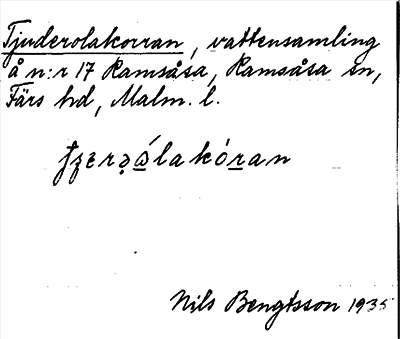 Tjuderolakorran, vattensamling
å n:r 17 Ramsåsa, Ramsåsa sn,
Färs hd, Malm. l.
Nils Bengtsson 1935